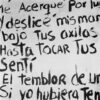 Me Acerqué Por tu
Y deslicé mis mano
bajo Tus axilas
Hasta Tocar Tus
Sentí
El Temblor de un
Si yo hubiera Ten